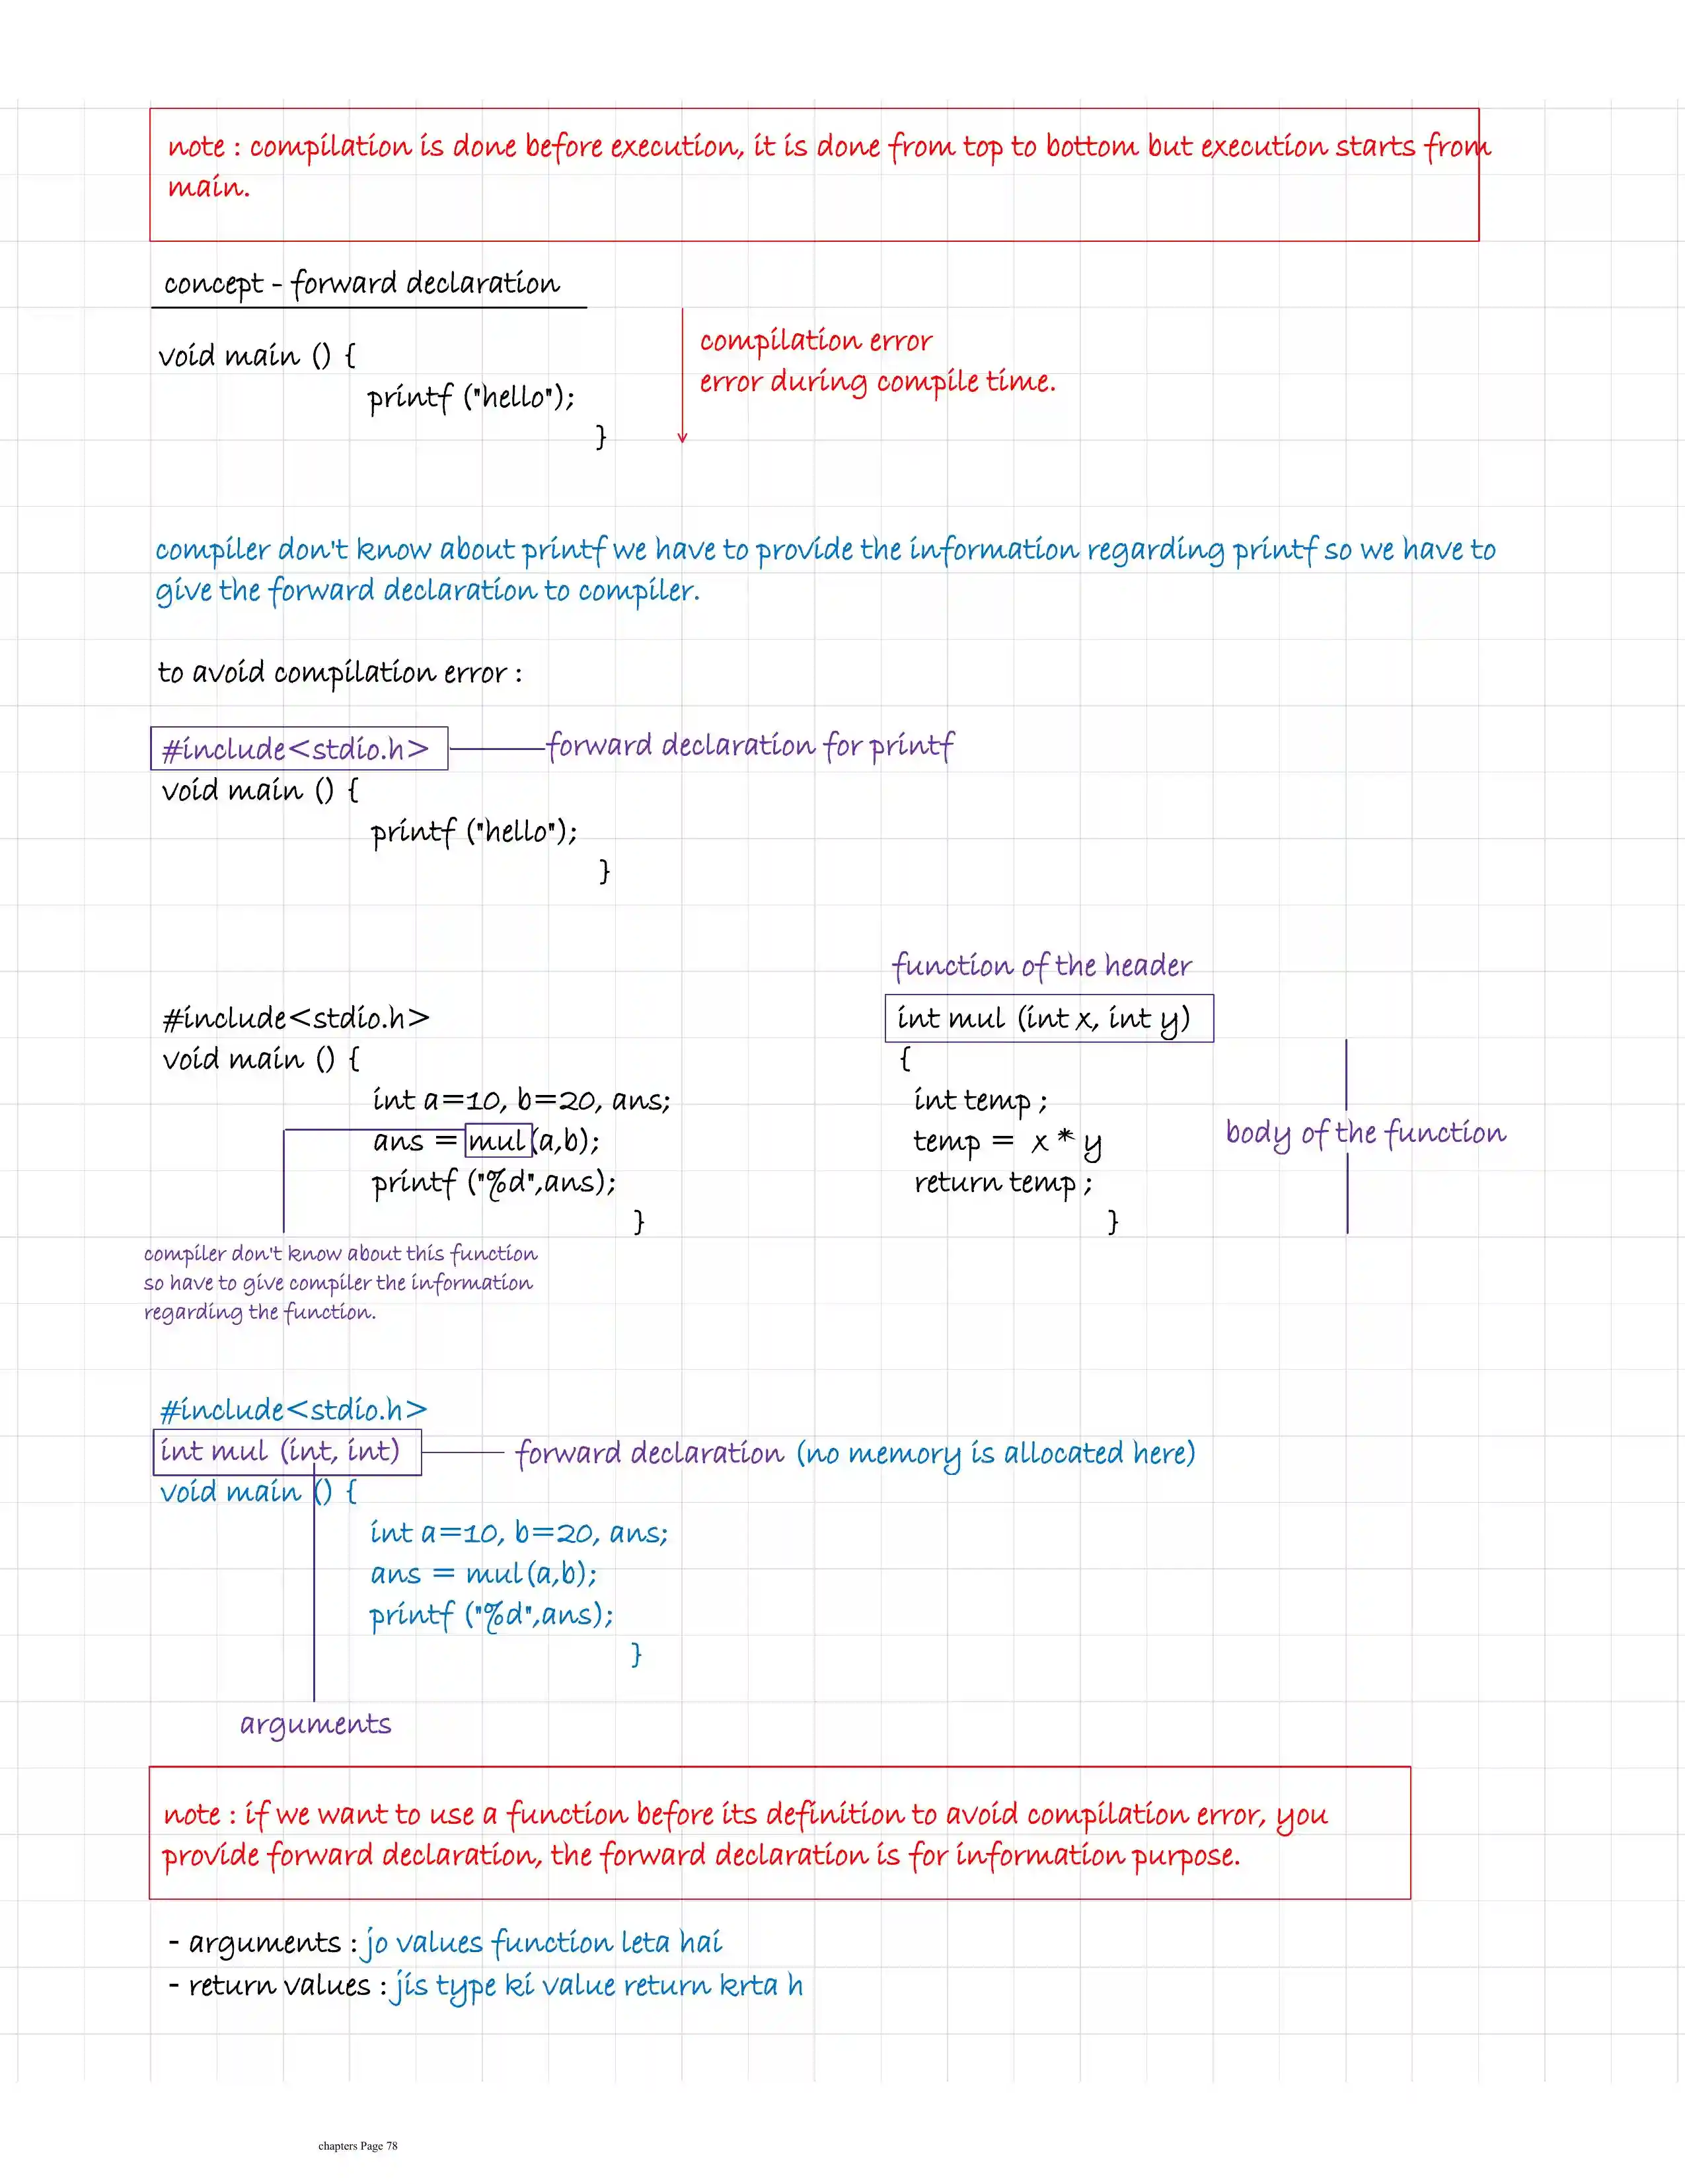 note : compilation is done before execution, it is done from top to bottom but execution starts from
main.
concept - forward declaration
void main () {
printf ("hello");
}
compilation error
error during compile time.
compiler don't know about printf we have to provide the information regarding printf so we have to
give the forward declaration to compiler.
to avoid compilation error :
#include<stdio.h>
forward declaration for printf
void main () {
printf ("hello");
}
#include<stdio.h>
void main () {
int a=10, b=20, ans;
ans = mul(a,b);
printf ("%d",ans);
}
compiler don't know about this function
so have to give compiler the information
regarding the function.
function of the header
int mul (int x, int y)
{
int temp ;
temp = x * y
return temp ;
}
body of the function
#include<stdio.h>
int mul (int, int)
forward declaration (no memory is allocated here)
void main () {
int a=10, b=20, ans;
ans = mul(a,b);
printf ("%d",ans);
}
arguments
note : if we want to use a function before its definition to avoid compilation error, you
provide forward declaration, the forward declaration is for information purpose.
- arguments : jo values function leta hai
- return values : jis type ki value return krta h
chapters Page 78